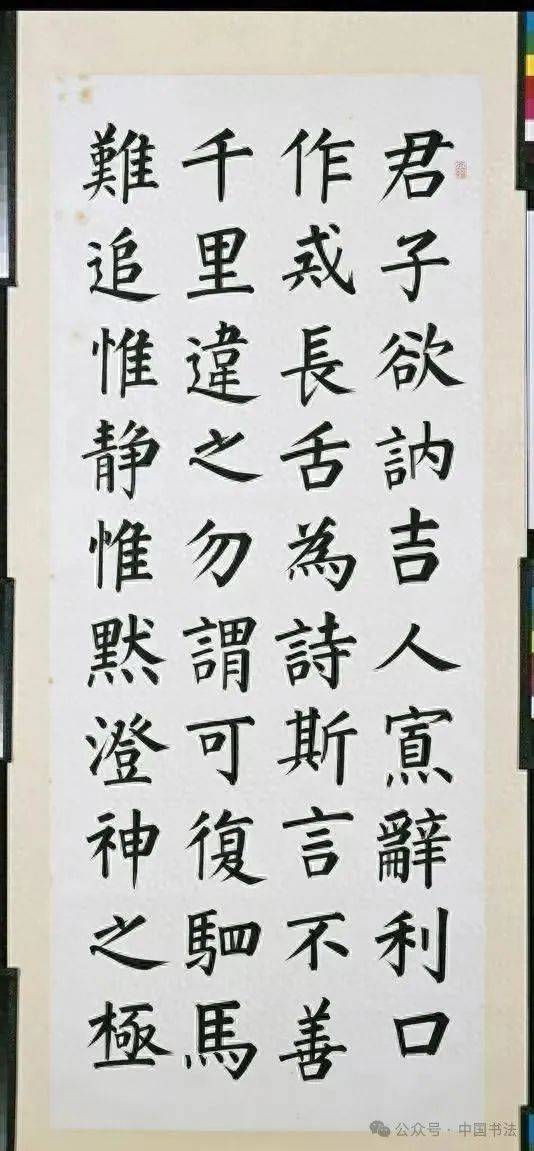 君子欲訥吉人寡辭利口
作戒長舌為詩斯言不善
千里違之勿謂可復駟馬
難追惟静惟默澄神之極
公众号·中国书法